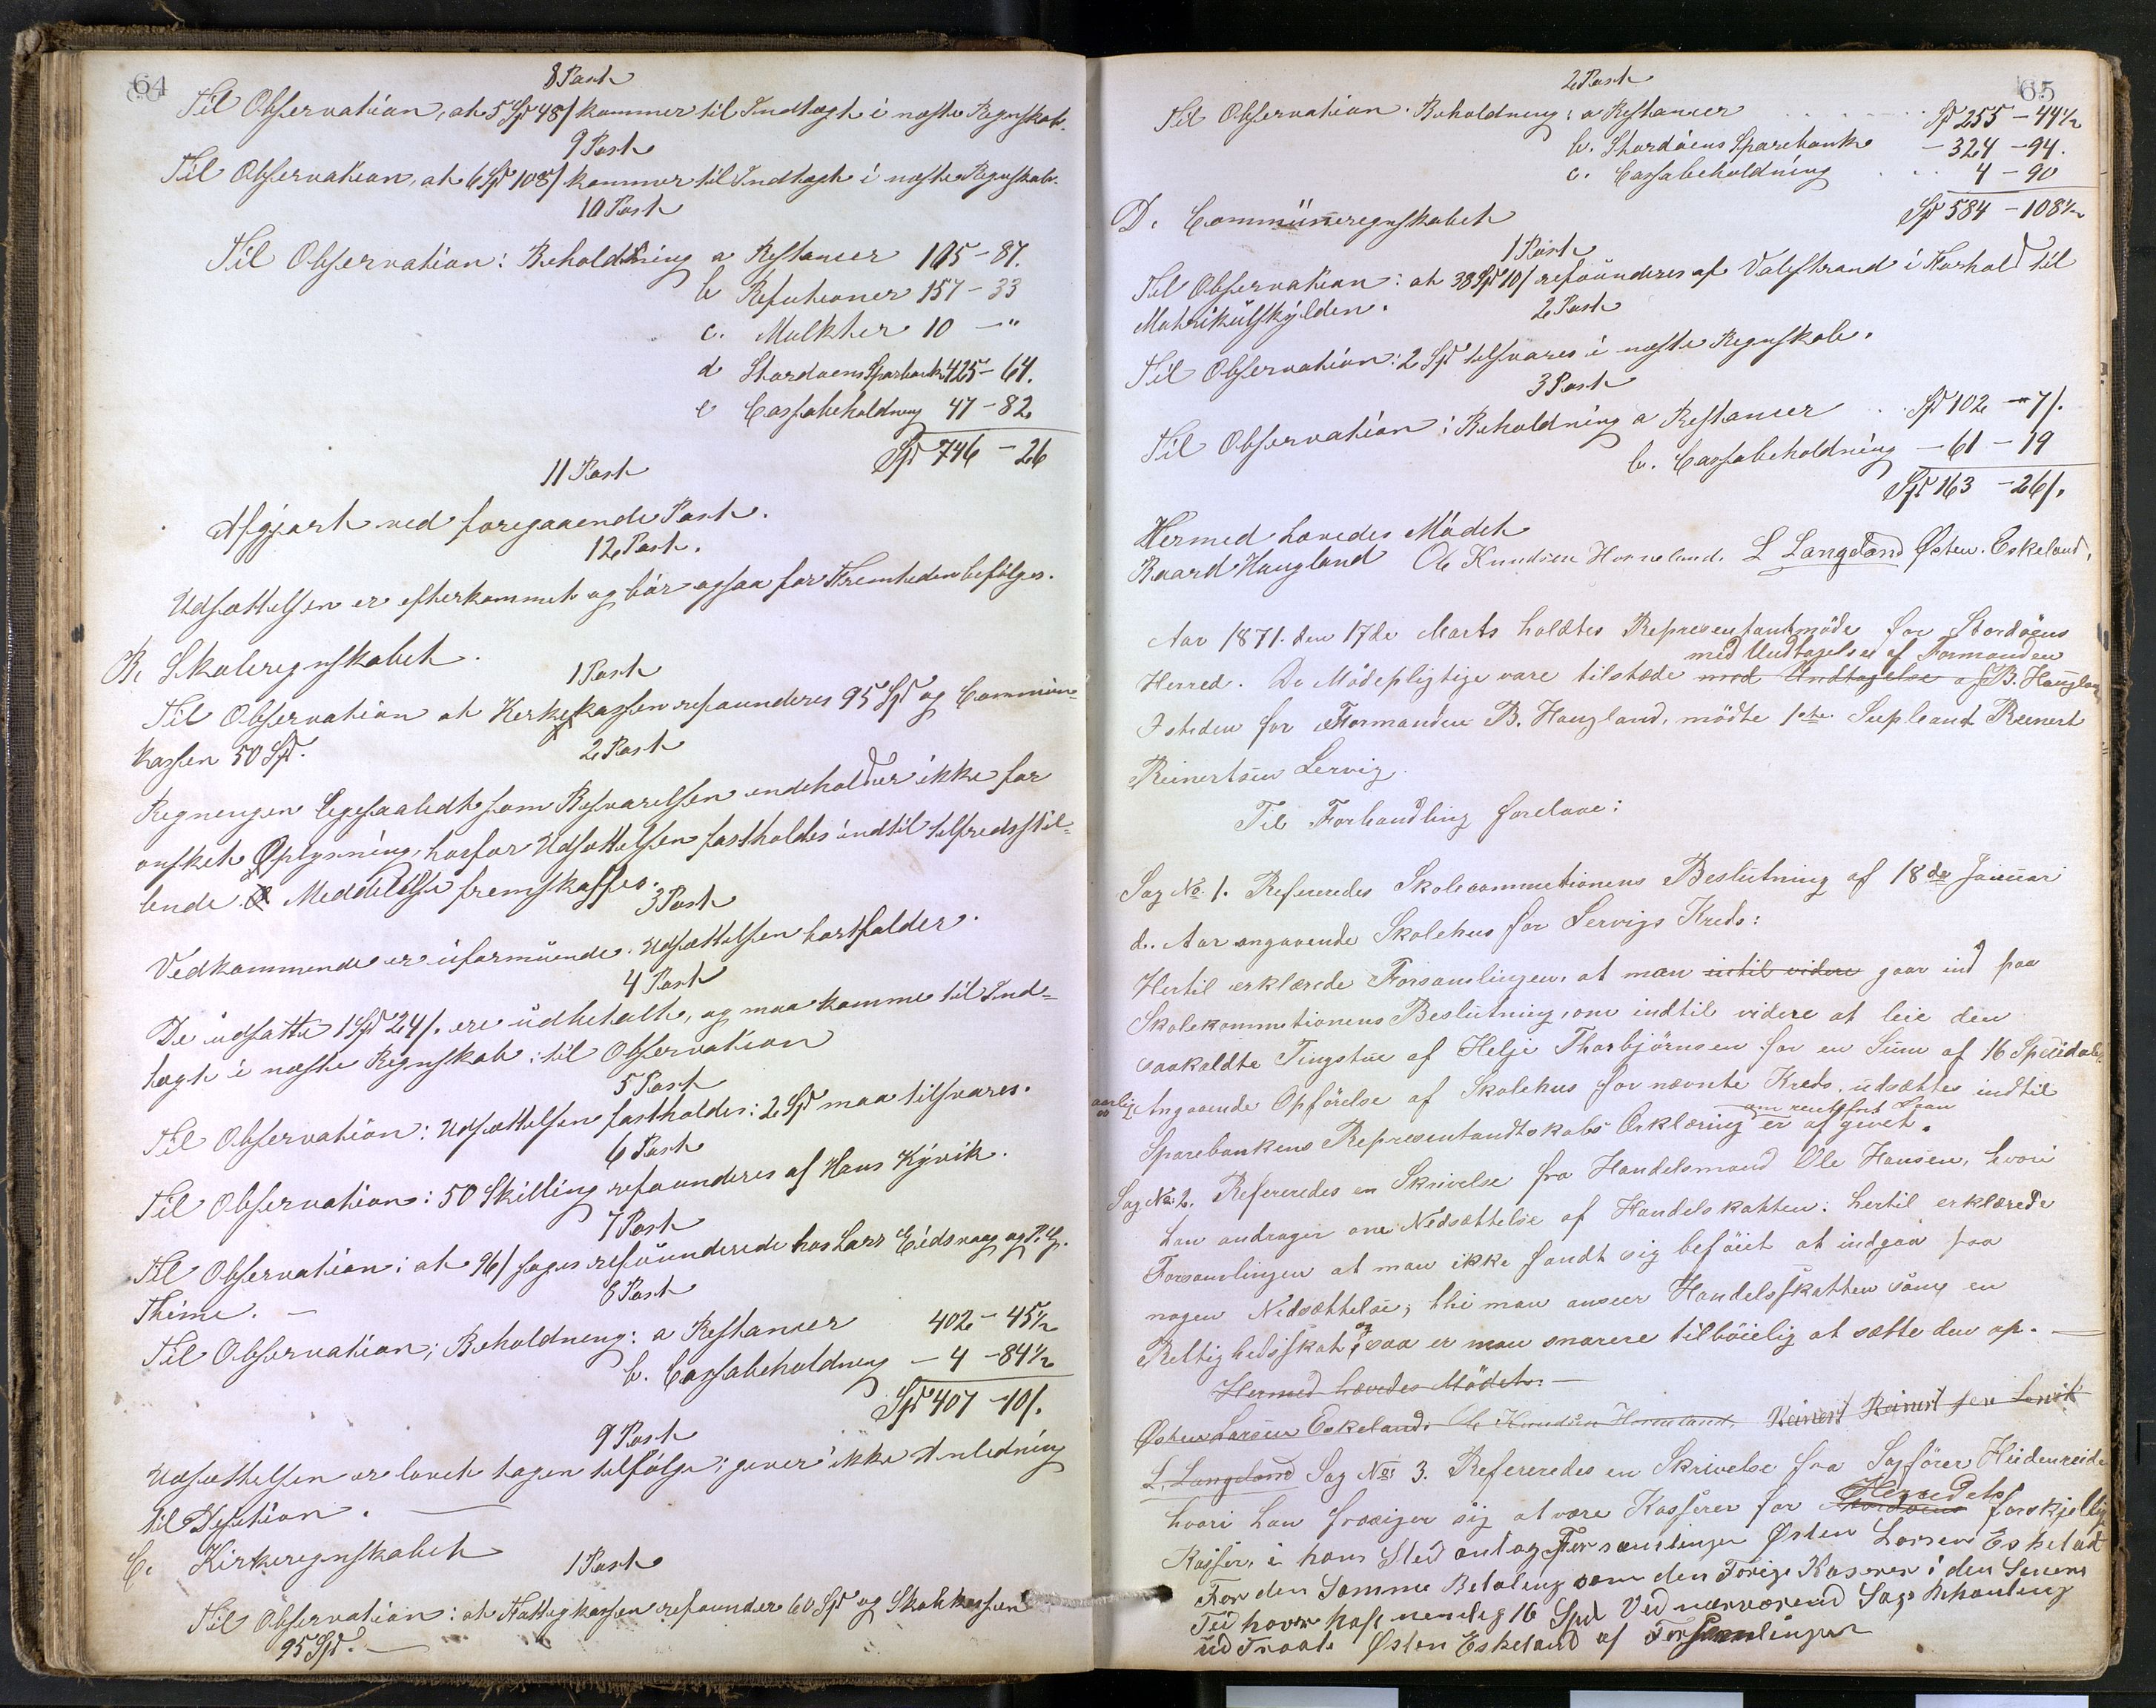 64
8 Post
Til Observation, at 5 Spd 48 s kommer til Indtægt i næste Regnskab.
9 Post
Til Observation, at 6 Spd 108 s kommer til Indtægt i næste Regnskab.
10 Post
Til Observation: Beholdning a Restancer 105 - 87.
b Refusioner 157 - 33
c. Mulkter 10 - "
d Stordøens Sparbank 425 - 64.
e Cassabeholdning 47 - 82
Spd 746 - 26
11 Post
Afgjort ved foregaaende Post.
12 Post.
Udsættelsen er efterkommet og bør ogsaa for Fremtiden befølges.
B. Skoleregnskabet.
1 Post
Til Observation at Kirkekassen refunderes 95 Spd og Commune-
kassen 50 Spd.
2 Post
Regningen ligesaalidt som Besvarelsen indeholder ikke for
ønsket Oplysning, hvorfor Udsættelsen fastholdes indtil tilfredsstil-
lende Meddelelse fremskaffes.
3 Post
Vedkommende er uformuende. Udsættelsen bortfalder.
4 Post
De udsatte 1 Spd 24 s. ere udbetalte, og maa komme til Ind-
tægt i næste Regnskab: til Observation
5 Post
Til Observation: Udsættelsen fastholdes: 2 Spd maa tilsvares.
6 Post
Til Observation: 50 Skilling refunderes af Hans Kyvik.
7 Post
Til Observation: at 96 s søges refunderede hos Lars Eidsvaag og P. G.
Thime. -
8 Post
Til Observation; Beholdning: a Restancer 402 - 45½
b. Cassabeholdning - 4 - 84½
Spd 407 - 10 s.
9 Post
Udsættelsen er lovet tagen tilfølge; giver ikke Anledning
til Desition.
C. Kirkeregnskabet
1 Post
Til Observation: at Fattigkassen refunder 60 Spd og Skolekassen
95 Spd. -
65
2 Post
Til Observation. Beholdning: a Restancer Sp 255 - 44½
b. Stordøens Sparebank - 324 - 94.
c. Cassabeholdning 4 - 90
Spd 584 - 108½
D. Communeregnskabet
1 Post
Til Observation: at 38 Spd 10 s refunderes af Valestrand i Forhold til
Matrikulskylden.
2 Post
Til Observation: 2 Spd tilsvares i næste Regnskab.
3 Post
Til Observation: Beholdning a Restancer Spd 102 - 7 s.
b. Cassabeholdning - 61 - 19
Spd 163 - 26 s.
Hermed hævedes Mødet
Baard Haugland Ole Knudsen Horneland. L Langeland Østen Eskeland.
Aar 1871. den 17de Marts holdtes Representantmøde for Stordøens
med Undtagelse af Formanden
Herred. De Mødepligtige vare tilstæde med Undtagelse af B. Haugland
Isteden for Formanden B. Haugland, mødte 1ste Supleant Reinert
Reinertsen Lervig.
Til Forhandling forelaae:
Sag No 1. Refereredes Skolecommitionens Beslutning af 18de Januar
d. Aar angaaende Skolehus for Lervigs Kreds:
Hertil erklærede Forsamlingen, at man intil videre gaar ind paa
Skolekommitionens Beslutning, om indtil videre at leie den
saakaldte Tingstue af Helje Thorbjørnsen for en Sum af 16 Speidaler
aarlig Angaaende Opførelse af Skolehus for nævnte Kreds. udsættes indtil
om rentefrit Laan
Sparebankens Representandtskabs Erklæring er afgivet.
Sag No 2. Refereredes en Skrivelse fra Handelsmand Ole Hansen, hvori
han andrager om Nedsættelse af Handelskatten: hertil erklærede
Forsamlingen at man ikke fandt sig beføiet at indgaa paa
nogen Nedsættelse; thi man anseer Handelsskatten som en
og
Rettighedsskat, saa er man snarere tilbøielig at sætte den op. -
Hermed hævedes Mødet. -
Østen Larsen Eskeland. Ole Knudsen Horneland. Reinert Reinertsen Lervik
L. Langeland Sag No 3. Refereredes en Skrivelse fra Sagfører Heidenreich
Herredets
hvori han frasiger sig at være Kasserer for Stordøens forskjellige
Kasser, i hans Sted antog Forsamlingen Østen Larsen Eskeland
For den Samme Betaling som den Forige Kaserer i den Senere
Tid haver haft nemlig 16 Spd Ved nærværend Sags Behanling
udTraate Østen Eskeland af Forsamlingen